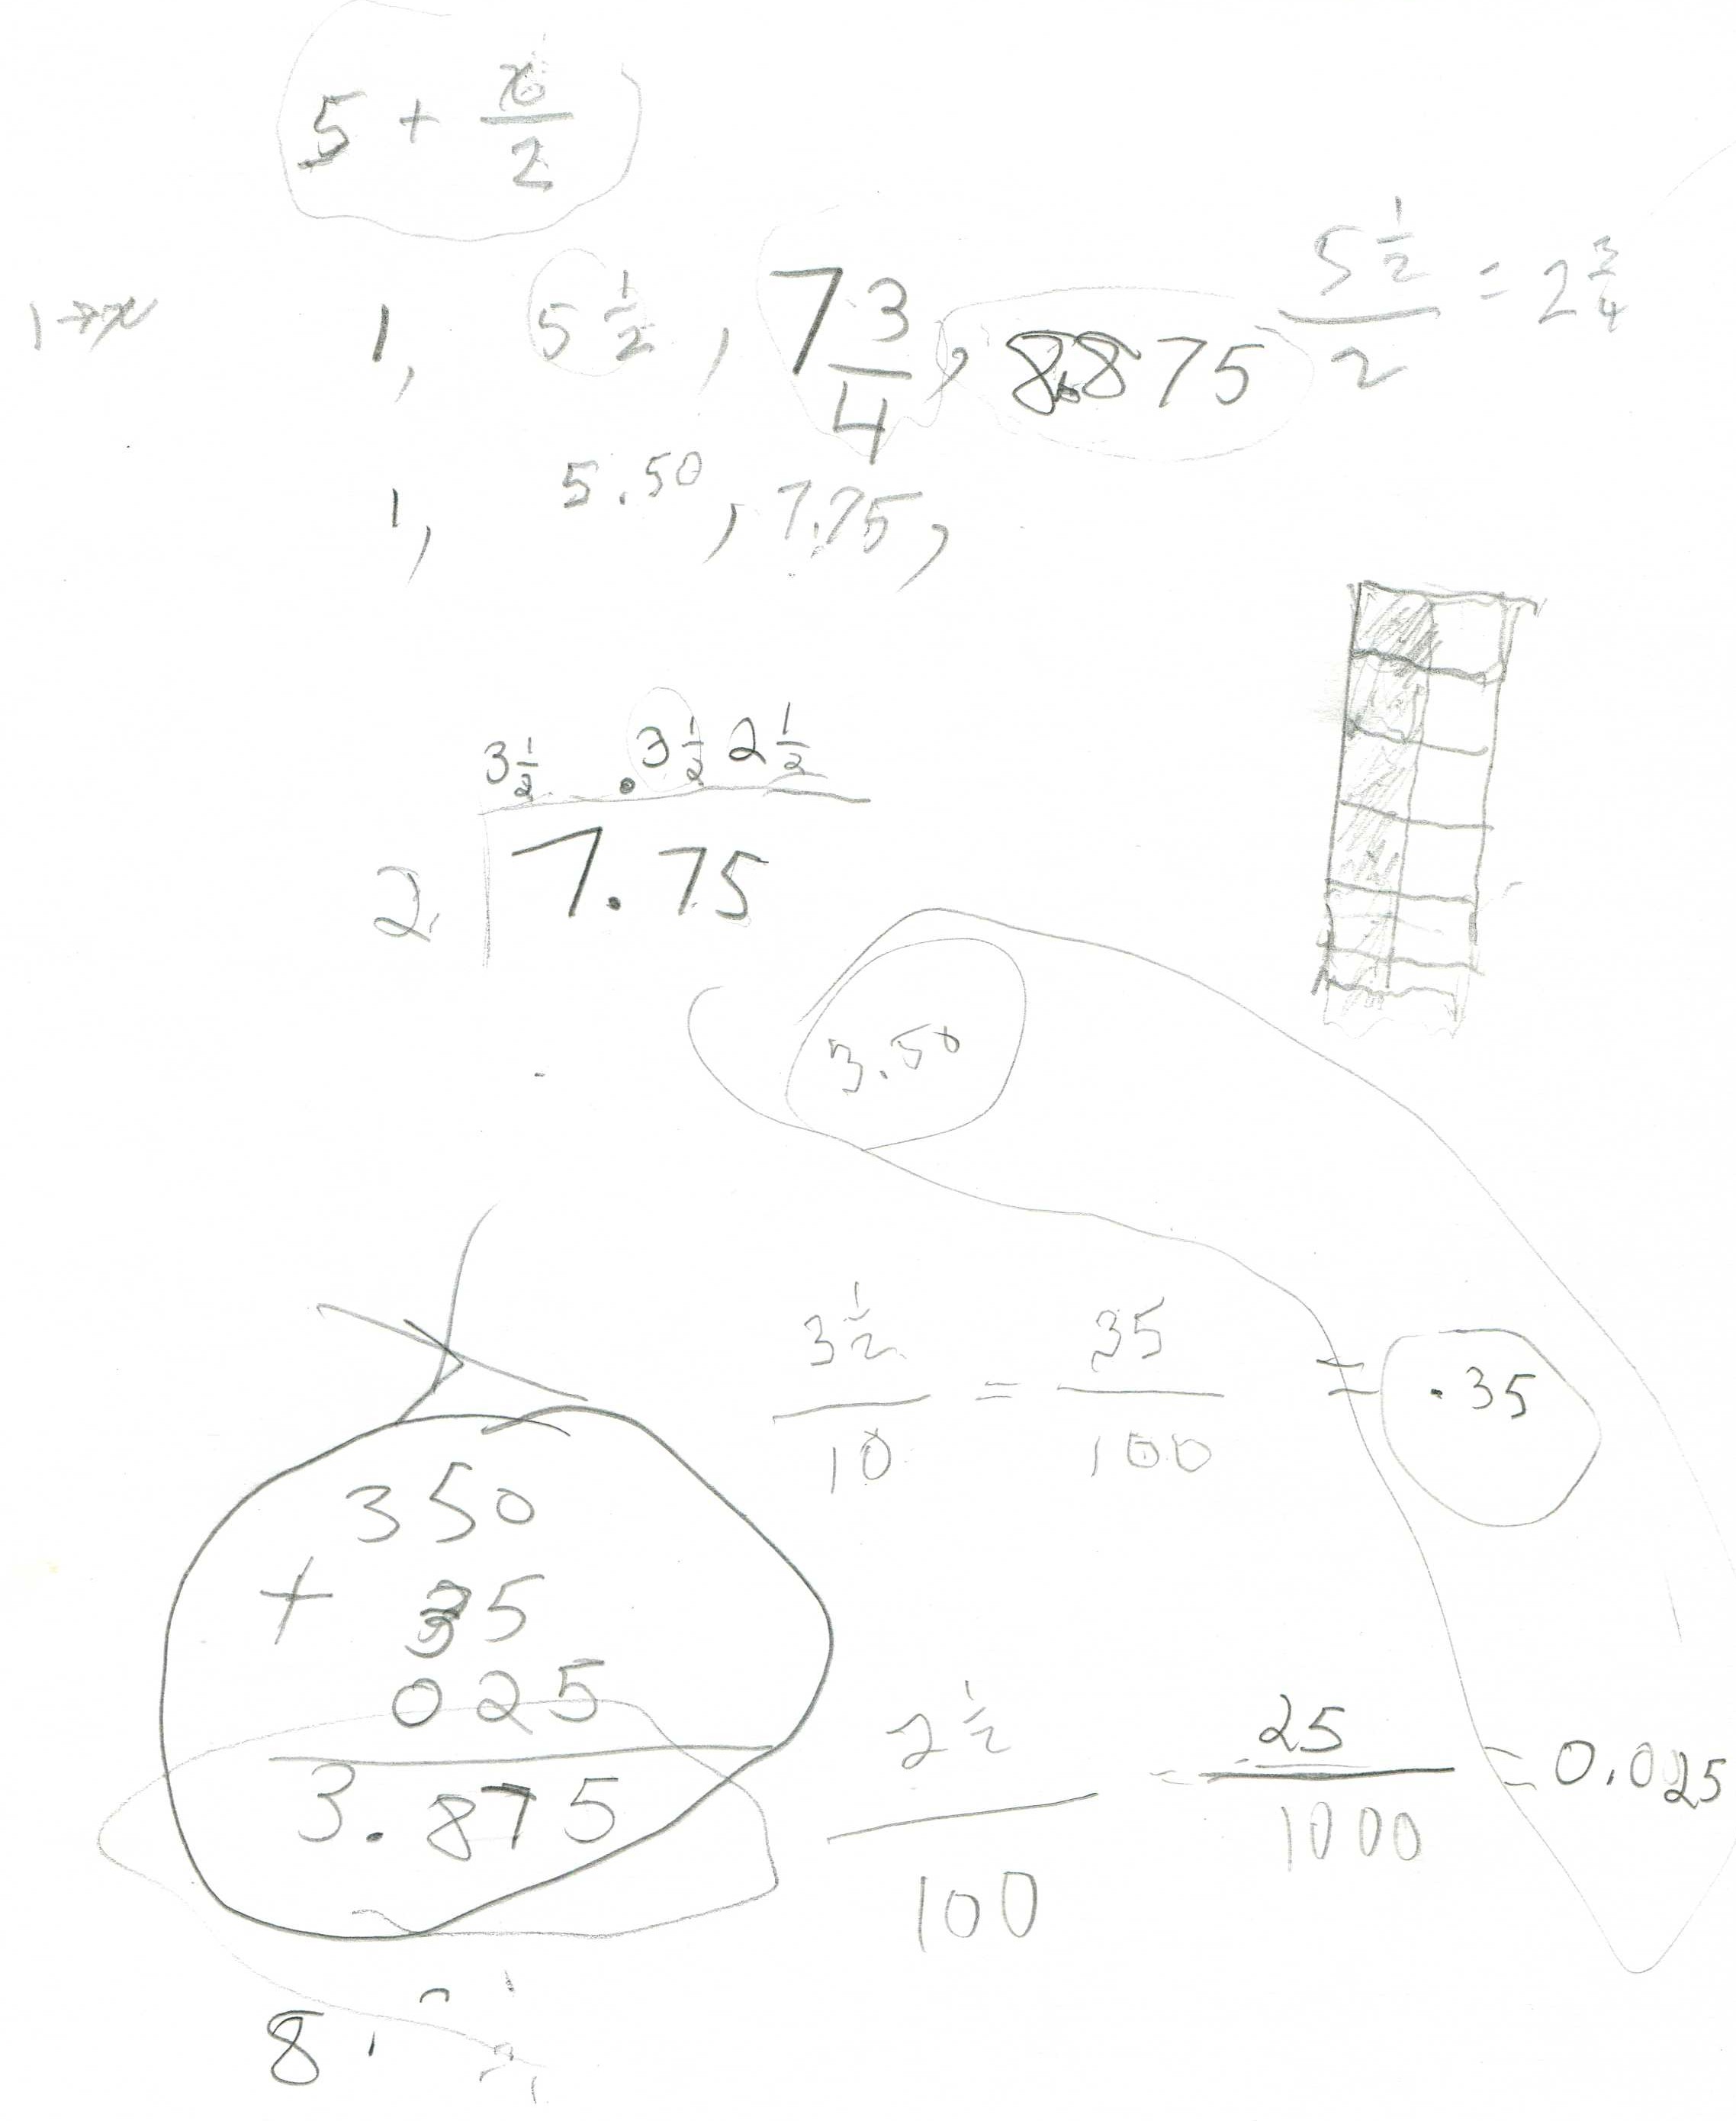 5 + x/2
1 → x 1, 5 1/2, 7 3/4, 8.875
5 1/2 / 2 = 2 3/4
1, 5.50, 7.75,
3 1/2 . 3 1/2 2 1/2
2 7.75
3.50
3 1/2 / 10 = 35/100 = .35
350
+ 35
025
3.875
2 1/2 / 100 = 25/1000 = 0.025
8.